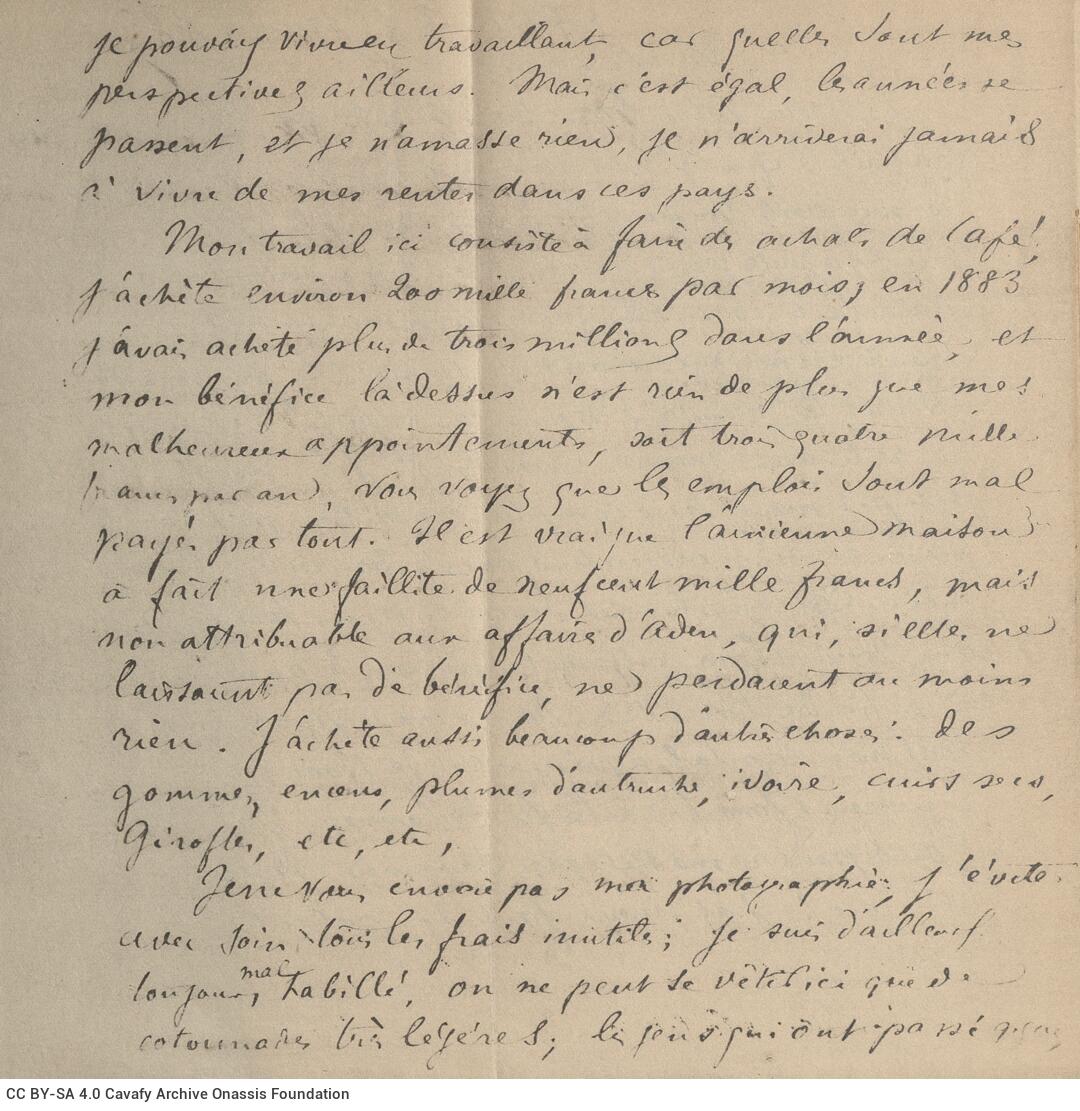 je pouvais vivre en travaillant, car quelles sont mes
perspectives ailleurs. Mais c'est égal, les années se
passent, et je n'amasse rien, je n'arriverai jamais
à vivre de mes rentes dans ces pays.
Mon travail ici consiste à faire des achats de Café!
j'achète environ 200 mille francs par mois, en 1883
j'avais acheté plus de trois millions dans l'année, et
mon bénéfice là dessus n'est rien de plus que mes
malheureux appointements, soit trois quatre mille
francs par an, vous voyez que les emplois sont mal
payés partout. Il est vrai que l'ancienne maison
a fait une faillite de neuf cent mille francs, mais
non attribuable aux affaires d'Aden, qui, si elles ne
laissaient pas de bénéfice, ne perdaient au moins
rien. J'achète aussi beaucoup d'autres choses: des
gommes, encens, plumes d'autruche, ivoire, cuirs secs,
Girofles, etc, etc,
Je ne vous envoie pas ma photographie, j'évite
avec soin tous les frais inutiles; je suis d'ailleurs
toujours mal habillé, on ne peut se vêtir ici que de
cotonnades très légères; les gens qui ont passé
CC BY-SA 4.0 Cavafy Archive Onassis Foundation